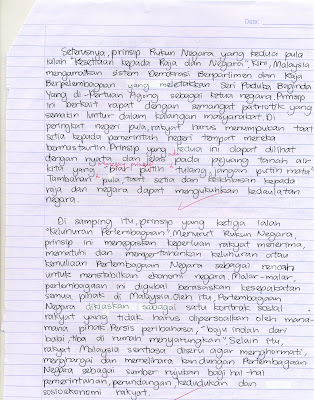 Date:
Seterusnya, prinsip Rukun Negara yang kedua pula
ialah "Kesetiaan kepada Raja dan Negara". Kini, Malaysia
mengamalkan sistem Demokrasi Berparlimen dan Raja
Berpelembagaan yang meletakkan Seri Paduka Baginda
Yang di-Pertuan Agong sebagai ketua negara. Prinsip
ini berkait rapat dengan semangat patriotik yang
semakin luntur dalam kalangan masyarakat. Di
peringkat negeri pula, rakyat harus menumpukan taat
setia kepada pemerintah negeri tempat mereka
bermastautin. Prinsip yang kedua ini dapat dilihat
dengan nyata dan jelas pada pejuang tanah air
kita yang "biar putih tulang, jangan putih mata"
Tambahan pula, taat setia dan kepada
raja dan negara dapat mengukuhkan kedaulatan
negara.
Di samping itu, prinsip yang ketiga ialah
"Keluhuran Perlembagaan". Menurut Rukun Negara,
prinsip ini menegaskan keperluan rakyat menerima,
mematuhi dan mempertahankan keluhuran atau
kemuliaan Perlembagaan Negara sebagai
untuk menstabilkan ekonomi negara. Malar-malar
perlembagaan ini digubal berasaskan kesepakatan
semua pihak di Malaysia. Oleh itu, Perlembagaan
Negara dikiaskan sebagai satu kontrak sosial
rakyat yang tidak harus dipersoalkan oleh mana-
mana pihak. Persis peribahasa, "bayu indah dari
balai, tiba di rumah menyarungkan". Selain itu,
rakyat Malaysia sentiasa diseru agar menghormati,
menghargai dan memelihara kandungan Perlembagaan
Negara sebagai sumber rujukan bagi hal-hal
pemerintahan, perundangan, kedudukan dan
sosioekonomi rakyat.